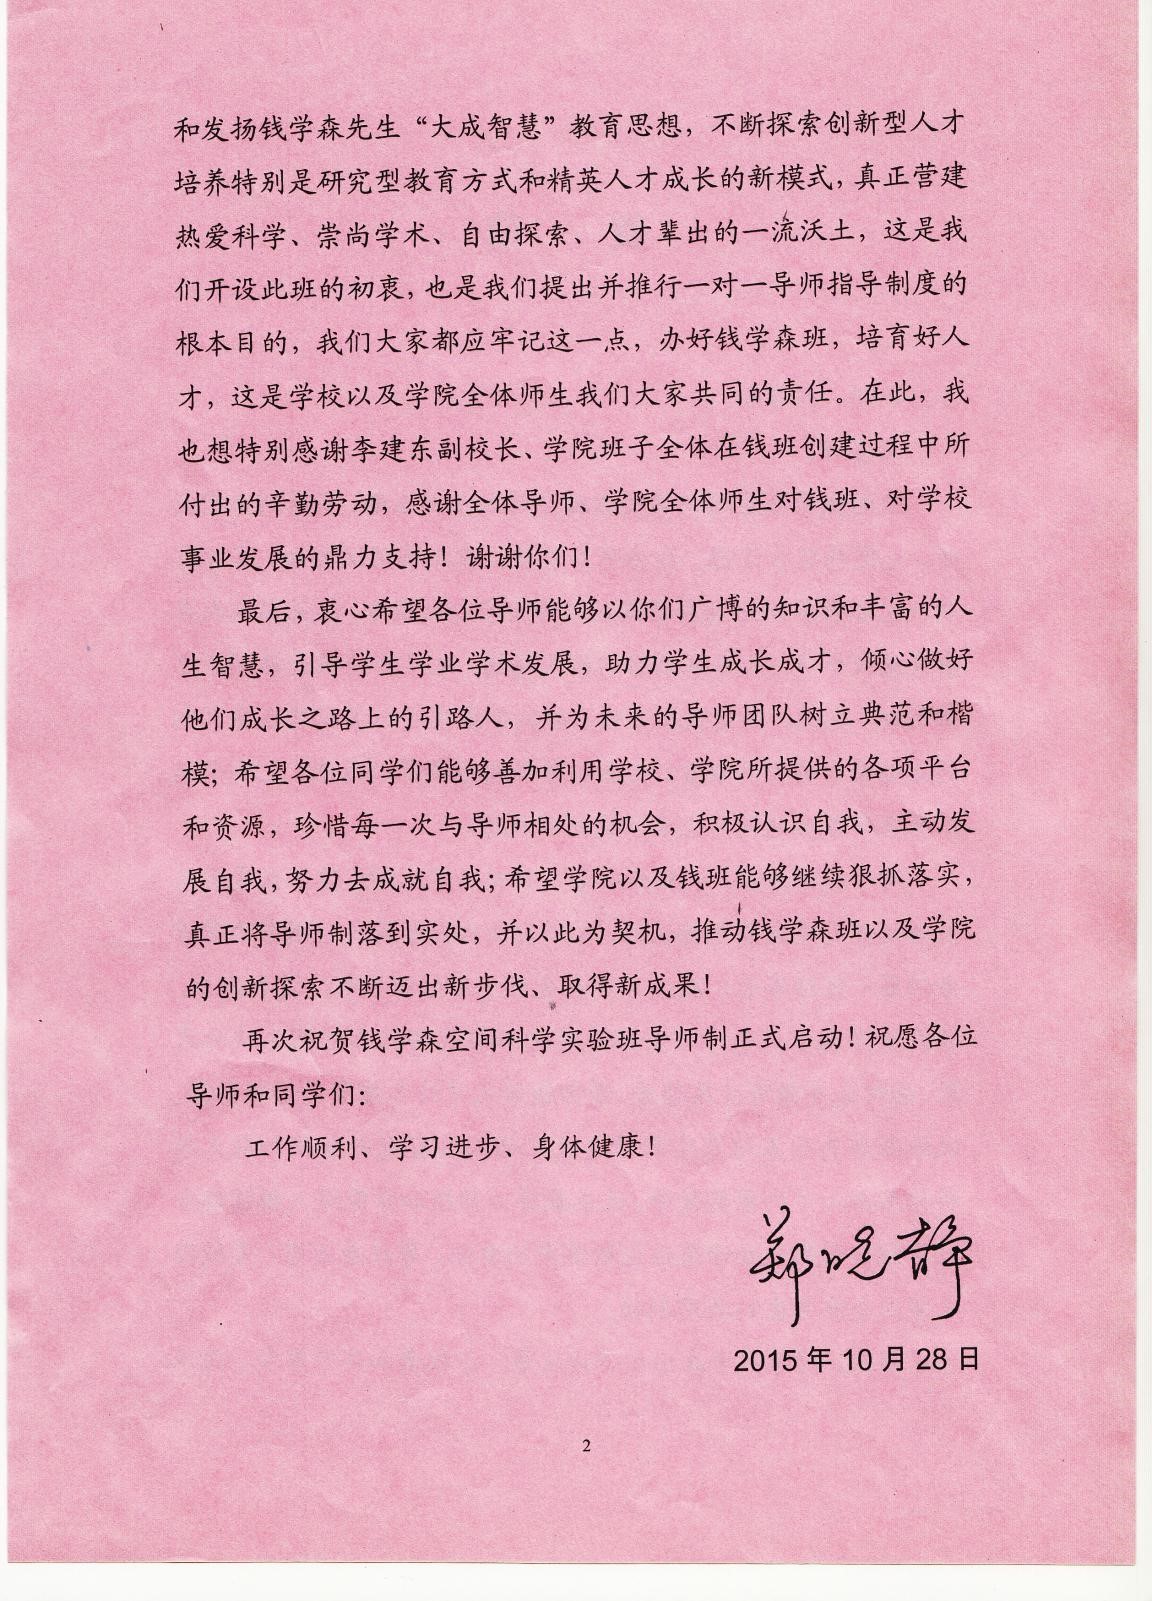 和发扬钱学森先生“大成智慧”教育思想，不断探索创新型人才
培养特别是研究型教育方式和精英人才成长的新模式，真正营建
热爱科学、崇尚学术、自由探索、人才辈出的一流沃土，这是我
们开设此班的初衷，也是我们提出并推行一对一导师指导制度的
根本目的，我们大家都应牢记这一点，办好钱学森班，培育好人
才，这是学校以及学院全体师生我们大家共同的责任。在此，我
也想特别感谢李建东副校长、学院班子全体在钱班创建过程中所
付出的辛勤劳动，感谢全体导师、学院全体师生对钱班、对学校
事业发展的鼎力支持！谢谢你们！
最后，衷心希望各位导师能够以你们广博的知识和丰富的人
生智慧，引导学生学业学术发展，助力学生成长成才，倾心做好
他们成长之路上的引路人，并为未来的导师团队树立典范和楷
模；希望各位同学们能够善加利用学校、学院所提供的各项平台
和资源，珍惜每一次与导师相处的机会，积极认识自我，主动发
展自我，努力去成就自我；希望学院以及钱班能够继续狠抓落实，
真正将导师制落到实处，并以此为契机，推动钱学森班以及学院
的创新探索不断迈出新步伐、取得新成果！
再次祝贺钱学森空间科学实验班导师制正式启动！祝愿各位
导师和同学们：
工作顺利、学习进步、身体健康！
郑晓静
2015年10月28日
2